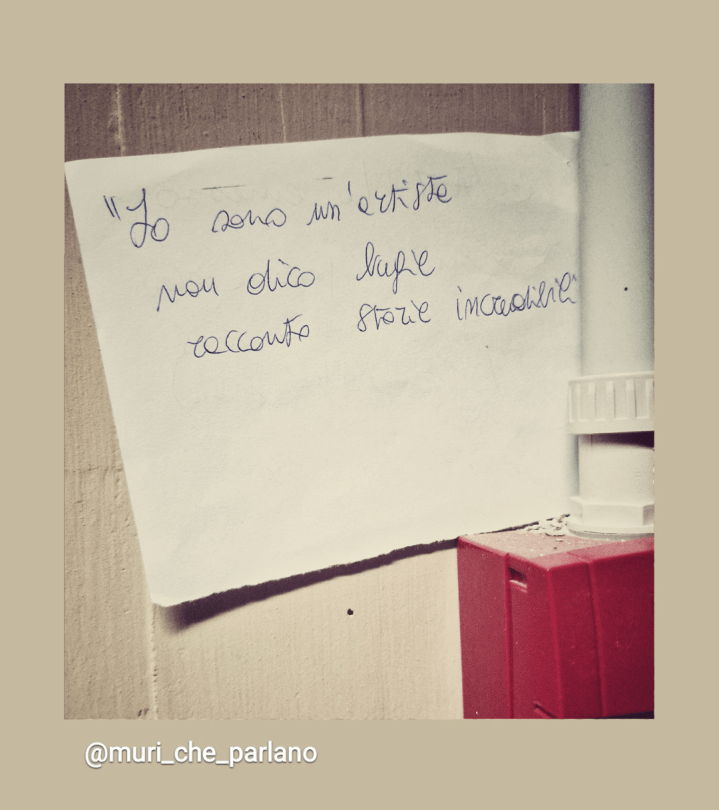 "Io sono un'artista
non dico bugie
racconto storie incredibili"
@muri_che_parlano